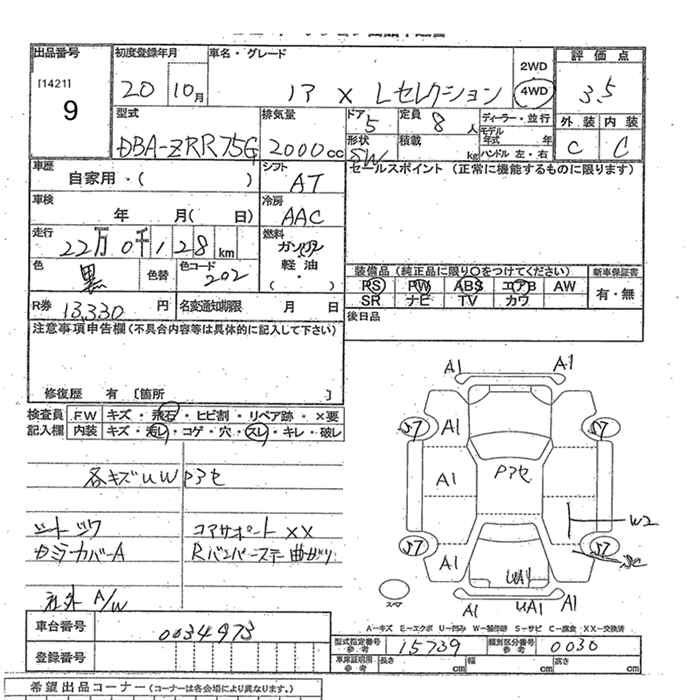 出品番号
[1421]
9
初度登録年月
20 10月
車名・グレード
X Lセレクション
2WD
4WD
評価点
3.5
外装 内装
C C
型式
DBA-ZRR75G
排気量
2000cc
ドア
5
定員
8人
形状
SW
積載
kg
ディーラー・並行
モデル年式 年
ハンドル 左・右
車歴
自家用・( )
シフト
AT
セールスポイント (正常に機能するものに限ります)
車検
年 月( 日)
冷房
AAC
走行
22万0千128km
燃料
ガソリン
軽油
・( ・ )
色
黒
色替
色コード
202
装備品 (純正品に限り○をつけてください)
新車保証書
PS PW ABS エアB AW
SR ナビ TV カワ
有・無
R券 13,330円
名変通知期限 月 日
後日品
注意事項申告欄(不具合内容等は具体的に記入して下さい)
修復歴 有 [箇所 ]
検査員記入欄
FW キズ・飛石・ヒビ割・リペア跡・×要
内装 キズ・汚レ・コゲ・穴・スレ・キレ・破レ
各キズUWPアセ
コアサポートXX
カバーA
Rバンパーステー曲がり
社外 A/W
A1 A1
57 A1 57
A1 Pアセ
W2
57 57
A1 SC
A1 UA1 A1
スペア
A-キズ E-エクボ U-凹み W-補修跡 S-サビ C-腐食 XX-交換済
車台番号
0034973
登録番号
型式指定番号
参考
15739
類別区分番号
参考
0030
車庫証明用
参考
長さ cm
幅 cm
高さ cm
希望出品コーナー (コーナーは各会場により異なります。)